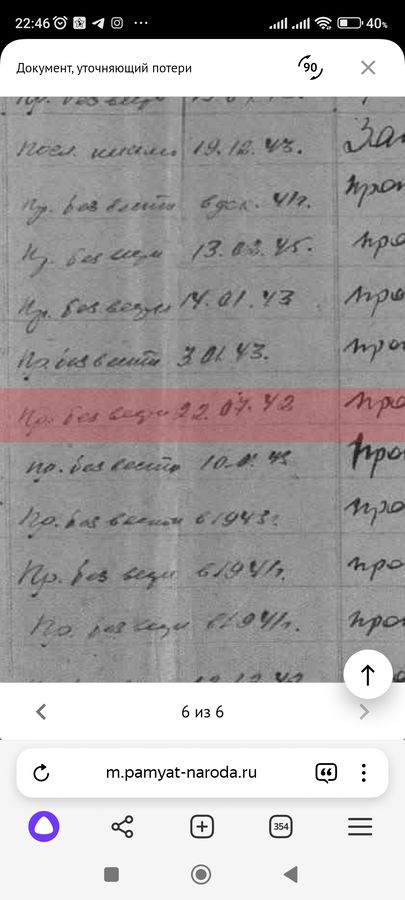 22:46 40%
Документ, уточняющий потери 90
Посл. письмо 19.12.43.
Пр. без вести в дек. 41г.
Пр. без вести 13.02.45.
Пр. без вести 14.01.43
Пр. без вести 3.01.43.
Пр. без вести 22.07.42
Пр. без вести
Пр. без вести в 1943г.
Пр. без вести в 1941г.
Пр. без вести в 1941г.
6 из 6
m.pamyat-naroda.ru
354